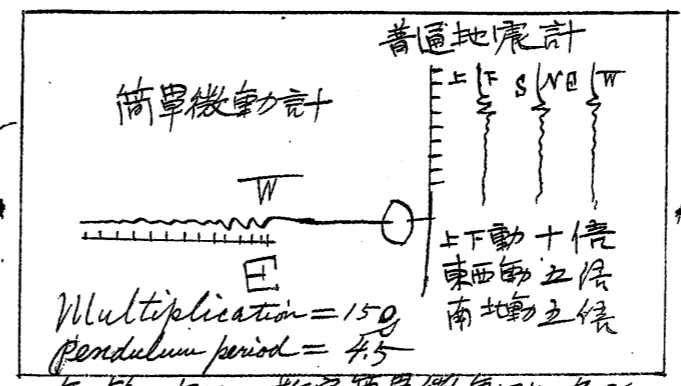 普通地震計
簡單微動計
上 下 S N E W
W
E
上下動十倍
東西動五倍
南北動五倍
Multiplication = 150
Pendulum period = 4.5